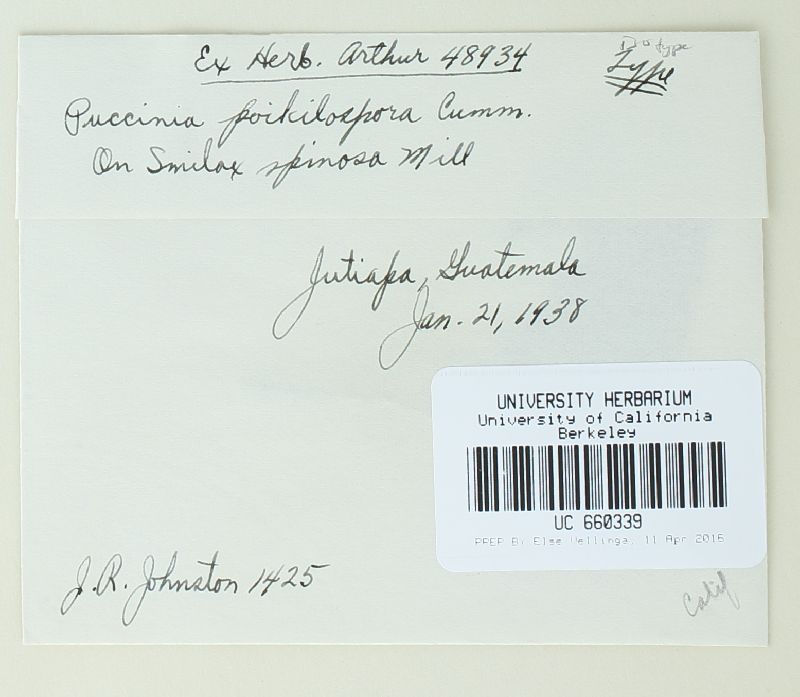 Ex Herb. Arthur 48934
Isotype
Type
Puccinia poikilospora Cumm.
On Smilax spinosa Mill
Jutiapa, Guatemala
Jan. 21, 1938
UNIVERSITY HERBARIUM
University of California
Berkeley
UC 660339
PREP By Else Vellinga, 11 Apr 2016
J.R. Johnston 1425
Calif